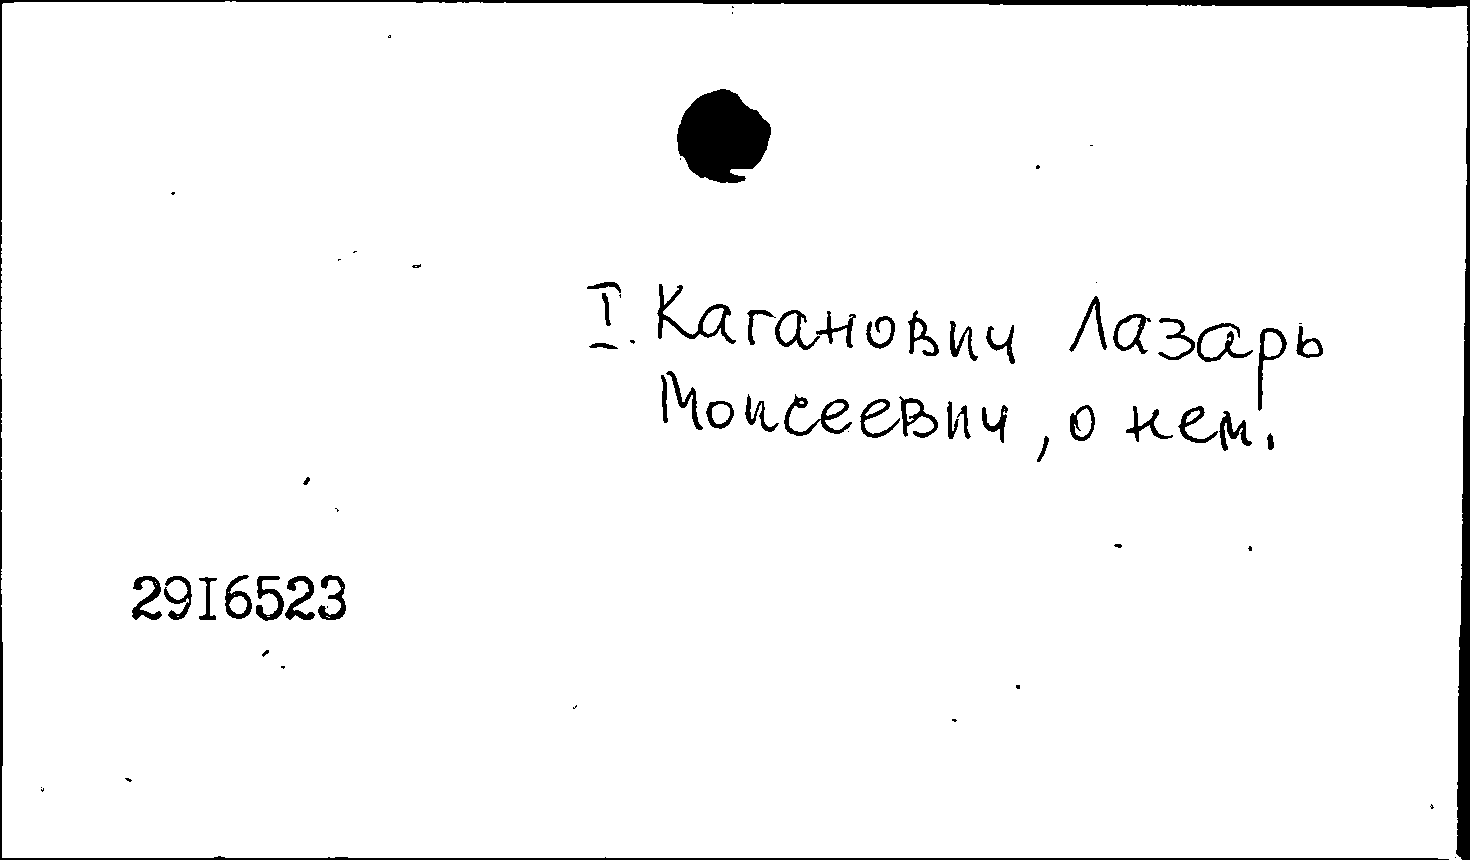 I. Каганович Лазарь
Моисеевич, о нем.
29I6523